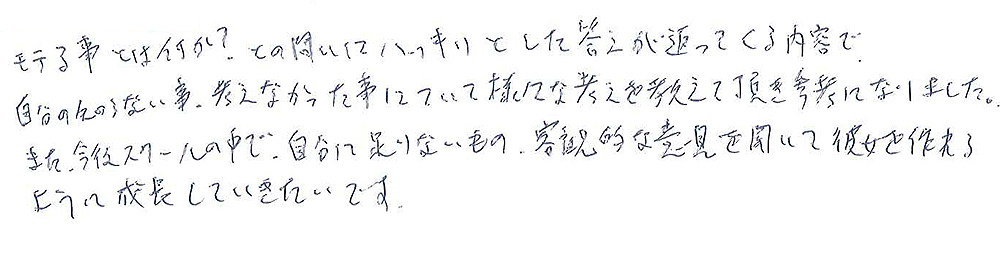 モテる事とは何か？との問いにハッキリとした答えが返ってくる内容で
自分の知らない事、考えなかった事について様々な考えを教えて頂き参考になりました。
また、今後スクールの中で、自分に足りないもの、客観的な意見を聞いて彼女を作れる
ように成長していきたいです。